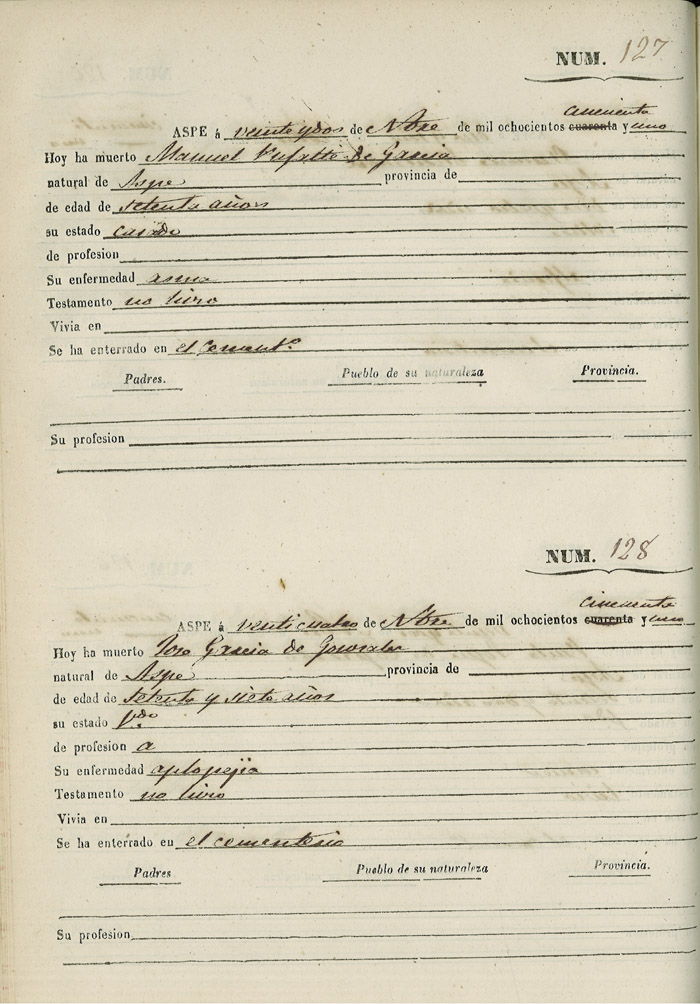 NUM. 127
cincuenta
ASPE á veinte y dos de Nbre de mil ochocientos cuarenta y uno
Hoy ha muerto Manuel de Garcia
natural de Aspe provincia de
de edad de setenta años
su estado casado
de profesion
Su enfermedad asma
Testamento no hizo
Vivia en
Se ha enterrado en el Cementº
Padres. Pueblo de su naturaleza Provincia.
Su profesion
NUM. 128
cincuenta
ASPE á venticuatro de Nbre de mil ochocientos cuarenta y uno
Hoy ha muerto Garcia de Gonzalez
natural de Aspe provincia de
de edad de setenta y siete años
su estado Vdo
de profesion a
Su enfermedad aplopejia
Testamento no hizo
Vivia en
Se ha enterrado en el cementerio
Padres Pueblo de su naturaleza Provincia.
Su profesion